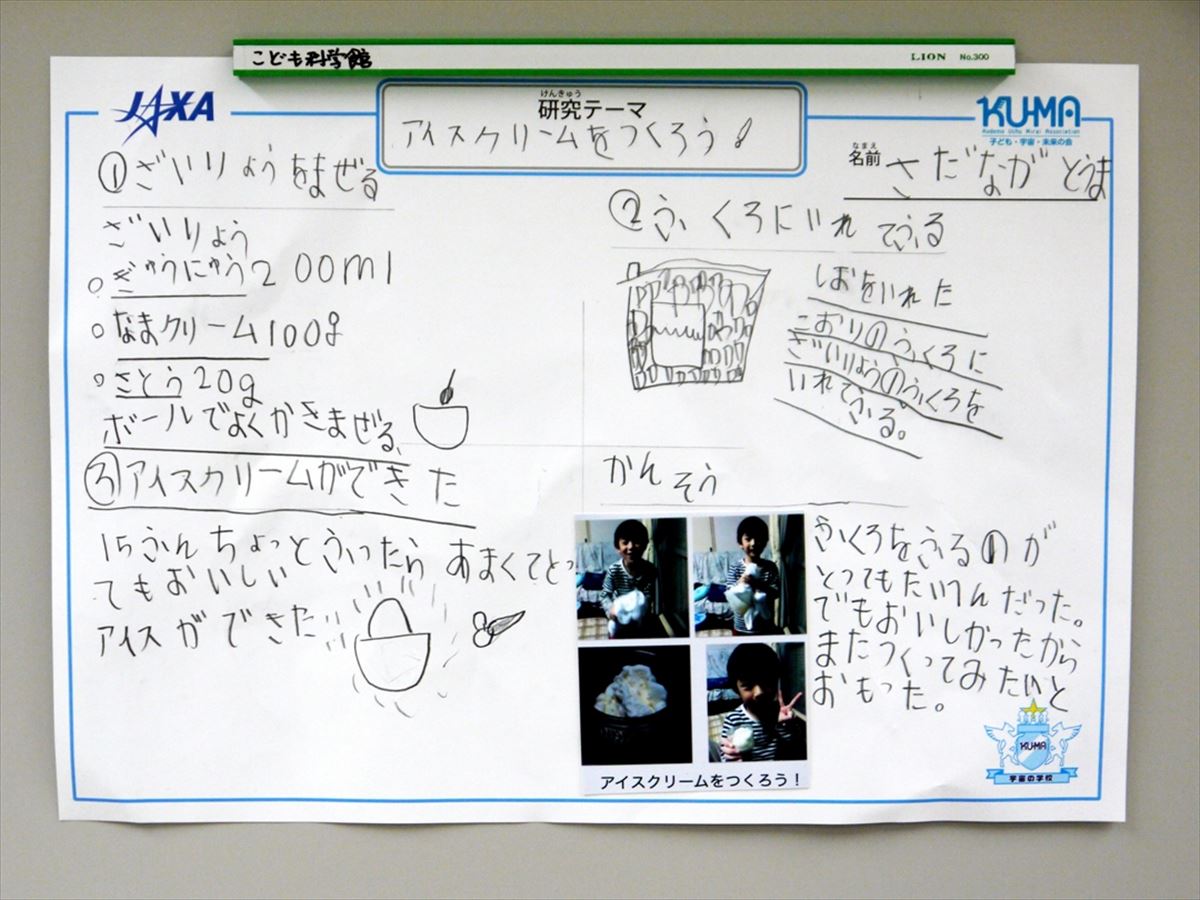 こども科学館
LION No.300
JAXA
けんきゅう
研究テーマ
アイスクリームをつくろう!
KU-MA
Kodomo Uchu Mirai Association
子ども・宇宙・未来の会
なまえ
名前 さだなが とうま
①ざいりょうをまぜる
ざいりょう
○ぎゅうにゅう200ml
○なまクリーム100g
○さとう20g
ボールでよくかきまぜる
②ふくろにいれてふる
しおをいれた
こおりのふくろに
ざいりょうのふくろを
いれてふる。
③アイスクリームができた
15ふんちょっとふったらあまくてとっ
てもおいしい
アイスができた
かんそう
ふくろをふるのが
とってもたいへんだった。
でもおいしかったから
またつくってみたいと
おもった。
アイスクリームをつくろう!
KU-MA
宇宙の学校